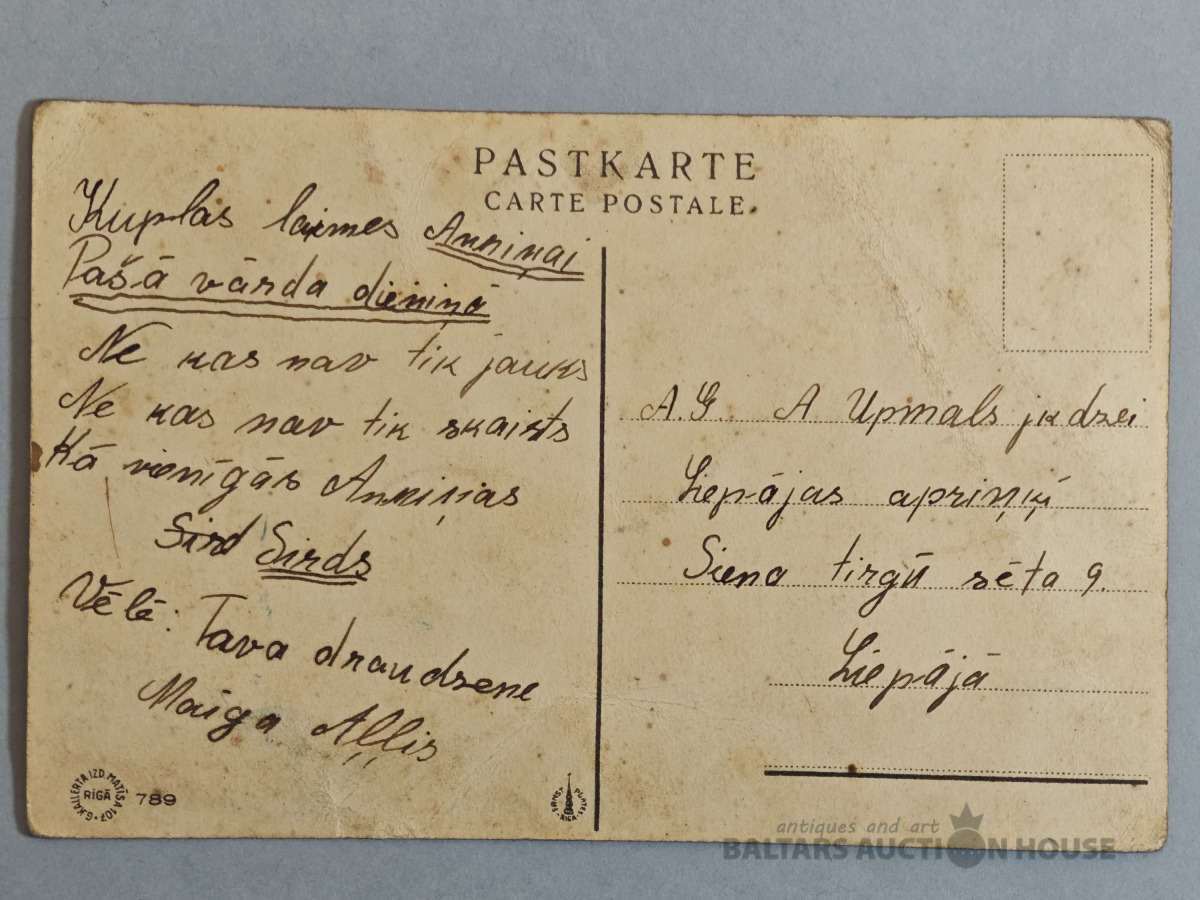 PASTKARTE
CARTE POSTALE
Kuplas laimes Anniņai
Pašā vārda dieniņā
Ne kas nav tik jauks
Ne kas nav tik skaists
Kā vienīgās Anniņas
Sird Sirds
Vēlē: Tava draudzene
Maiga Aļļis
A.G. A Upmals jk dzei
Liepājas apriņķī
Siena tirgū sēta 9.
Liepājā
G. KALLERTA IZD. MATĪSA 107
RĪGĀ
789
ERNST PLATES RIGA
antiques and art
BALTARS AUCTION HOUSE